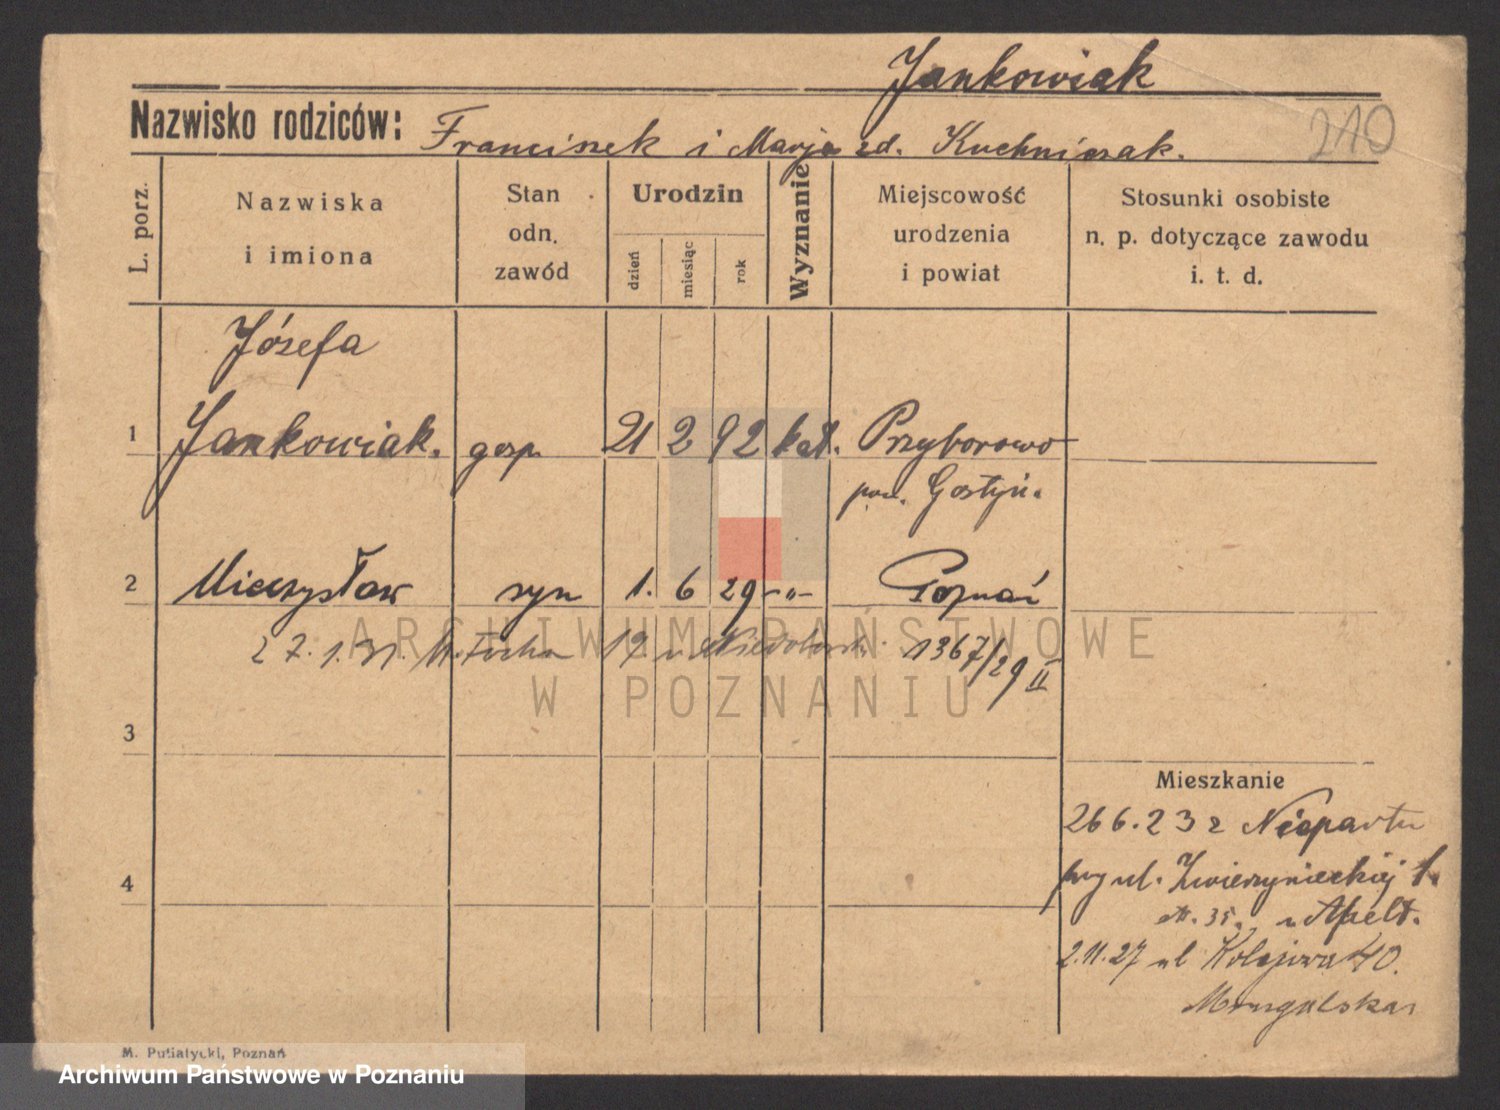 Jankowiak
Nazwisko rodziców: Franciszek i Marja zd. Kuchniczak.
210
L. porz.
Nazwiska
i imiona
Stan
odn.
zawód
Urodzin
dzień
miesiąc
rok
Wyznanie
Miejscowość
urodzenia
i powiat
Stosunki osobiste
n. p. dotyczące zawodu
i. t. d.
Józefa
1 Jankowiak. gosp. 21 2 92 kat. Przyborowo
pow. Gostyń.
2 Mieczysław syn 1. 6 29 -„- Poznań
27.1.31. Focha 19. 1367/29 II
ARCHIWUM PAŃSTWOWE
W POZNANIU
3
Mieszkanie
26 6. 23 z
przy ul. Zwierzynieckiej 1.
35. u Apelt.
4
2.11.27 ul Kolejowa 40.
M. Putiatycki, Poznań
Archiwum Państwowe w Poznaniu